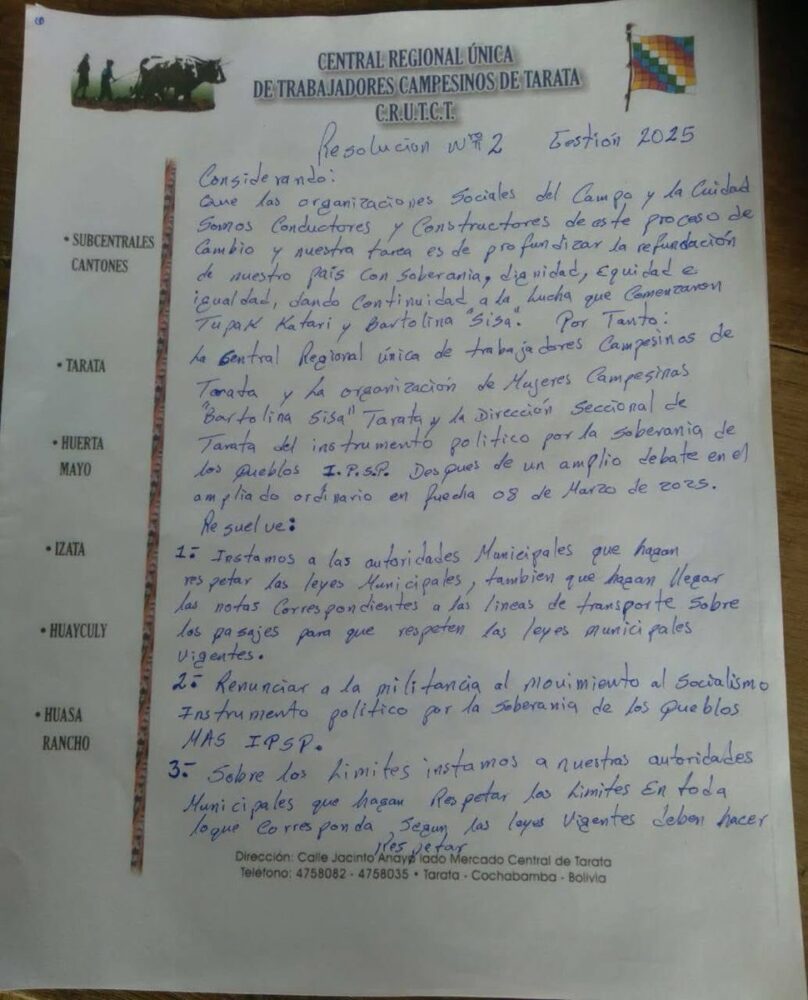 CENTRAL REGIONAL ÚNICA
DE TRABAJADORES CAMPESINOS DE TARATA
C.R.U.T.C.T.
Resolucion Nro 2 Gestión 2025
Considerando:
Que las organizaciones Sociales del Campo y la Cuidad
Somos Conductores y Constructores de este proceso de
Cambio y nuestra tarea es de profundizar la refundación
de nuestro país con soberania, dignidad, Equidad e
igualdad, dando Continuidad a la Lucha que Comenzaron
Tupak Katari y Bartolina "Sisa". Por Tanto:
La Central Regional única de trabajadores Campesinos de
Tarata y La organización de Mujeres Campesinas
"Bartolina Sisa" Tarata y la Dirección Seccional de
Tarata del instrumento politico por la soberania de
los Pueblos I.P.S.P. Despues de un amplio debate en el
ampliado ordinario en fuecha 08 de Marzo de 2025.
Resuelve:
1.- Instamos a las autoridades Municipales que hagan
respetar las leyes Municipales, tambien que hagan llegar
las notas Correspondientes a las lineas de transporte Sobre
los pasajes para que respeten las leyes municipales
vigentes.
2.- Renunciar a la militancia al Movimiento al Socialismo
Instrumento politico por la soberania de los Pueblos
MAS IPSP.
3.- Sobre los Limites instamos a nuestras autoridades
Municipales que hagan Respetar los Limites En toda
loque Corresponda, Segun las leyes Vigentes deben hacer
respetar
• SUBCENTRALES
CANTONES
• TARATA
• HUERTA
MAYO
• IZATA
• HUAYCULY
• HUASA
RANCHO
Dirección: Calle Jacinto Anaya lado Mercado Central de Tarata
Teléfono: 4758082 - 4758035 • Tarata - Cochabamba - Bolivia